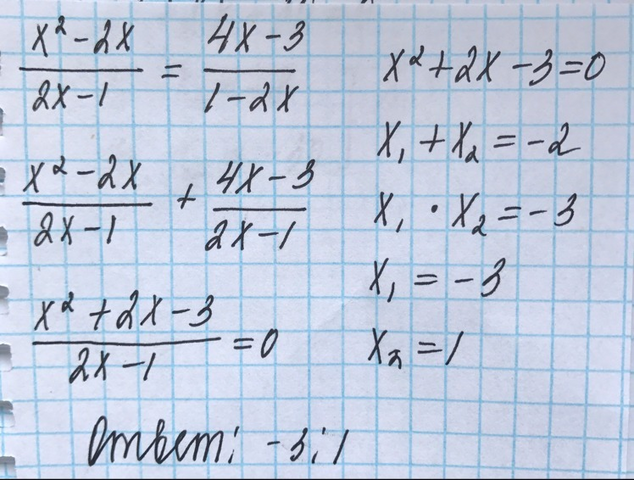 x² - 2x / 2x - 1 = 4x - 3 / 1 - 2x
x² - 2x / 2x - 1 + 4x - 3 / 2x - 1
x² + 2x - 3 / 2x - 1 = 0
x² + 2x - 3 = 0
x₁ + x₂ = -2
x₁ · x₂ = -3
x₁ = -3
x₂ = 1
Ответ: -3; 1